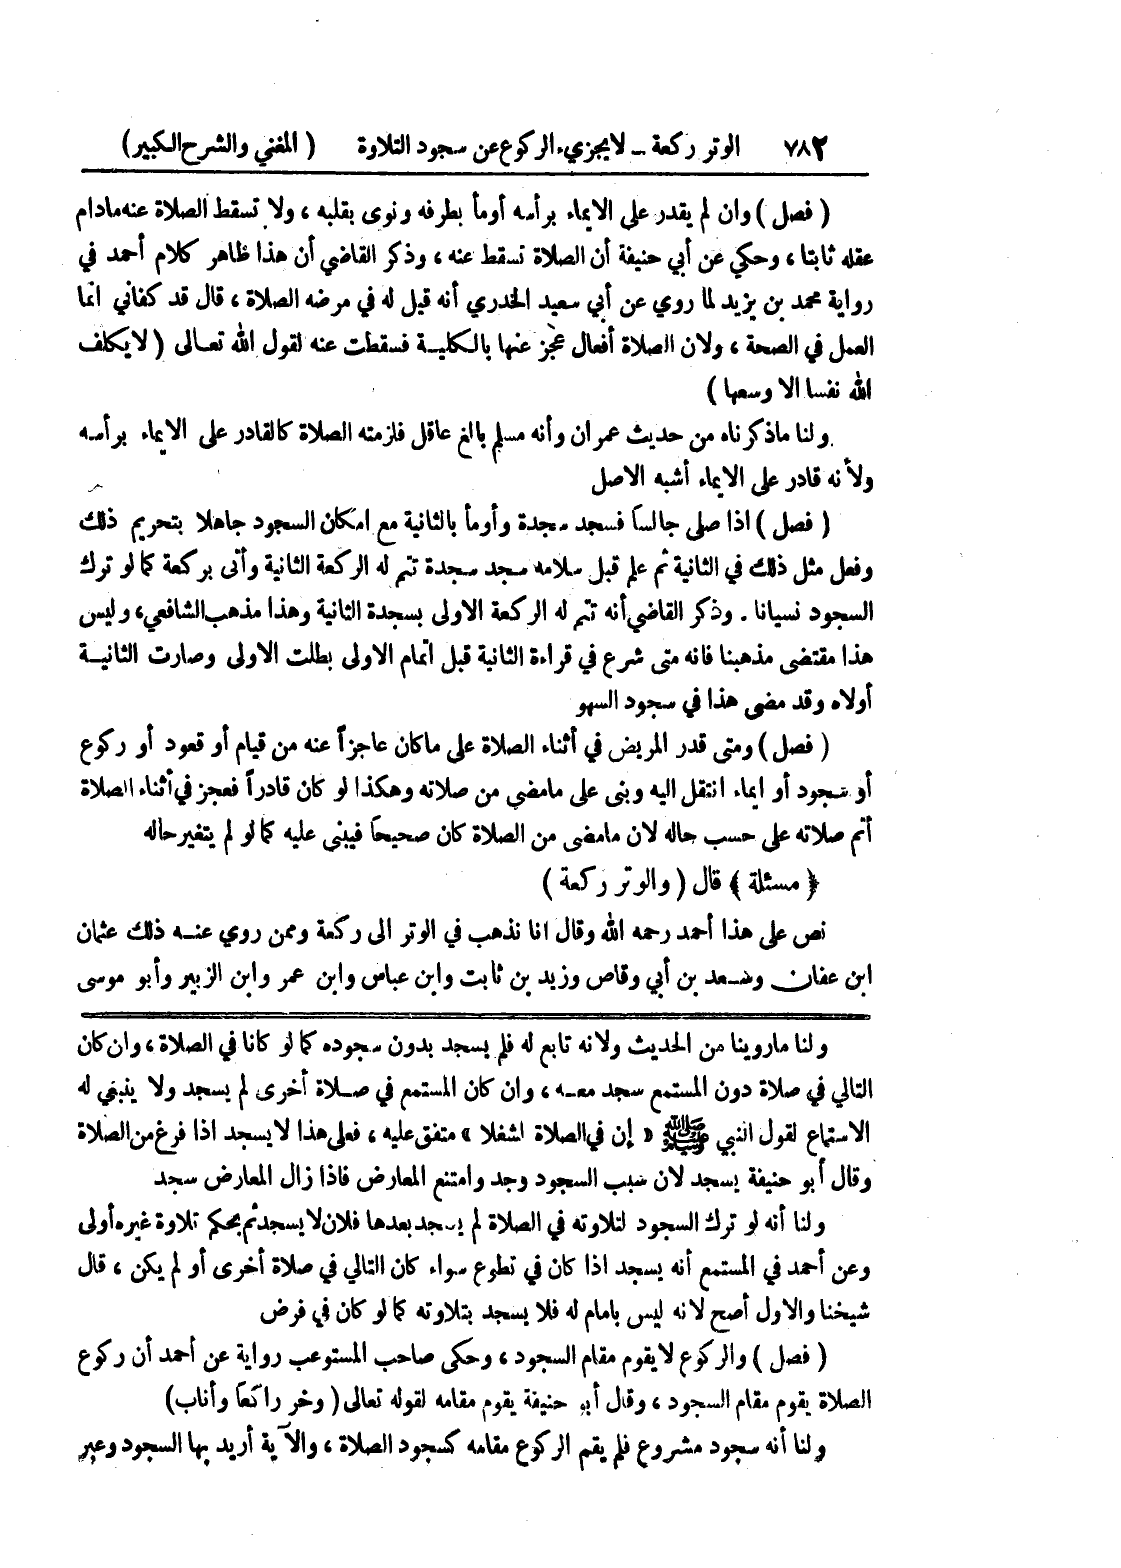 ٧٨٢ الوتر ركعة ـ لايجزيء الركوع عن سجود التلاوة ( المغني والشرح الكبير)
( فصل ) وان لم يقدر على الايماء برأسه أومأ بطرفه ونوى بقلبه ، ولا تسقط الصلاة عنه مادام
عقله ثابتا ، وحكي عن أبي حنيفة أن الصلاة تسقط عنه ، وذكر القاضي أن هذا ظاهر كلام أحمد في
رواية محمد بن يزيد لما روي عن أبي سعيد الخدري أنه قيل له في مرضه الصلاة ، قال قد كفاني انما
العمل في الصحة ، ولان الصلاة أفعال عجز عنها بالكلية فسقطت عنه لقول الله تعالى ( لايكلف
الله نفسا الا وسعها )
ولنا ماذكرناه من حديث عمران وأنه مسلم بالغ عاقل فلزمته الصلاة كالقادر على الايماء برأسه
ولأنه قادر على الايماء أشبه الاصل
( فصل ) اذا صلى جالساً فسجد سجدة وأومأ بالثانية مع امكان السجود جاهلا بتحريم ذلك
وفعل مثل ذلك في الثانية ثم علم قبل سلامه سجد سجدة تتم له الركعة الثانية وأتى بركعة كما لو ترك
السجود نسيانا . وذكر القاضي أنه تتم له الركعة الاولى بسجدة الثانية وهذا مذهب الشافعي، وليس
هذا مقتضى مذهبنا فانه متى شرع في قراءة الثانية قبل اتمام الاولى بطلت الاولى وصارت الثانية
أولاه وقد مضى هذا في سجود السهو
( فصل ) ومتى قدر المريض في أثناء الصلاة على ماكان عاجزاً عنه من قيام أو قعود أو ركوع
أو سجود أو ايماء انتقل اليه وبنى على مامضى من صلاته وهكذا لو كان قادراً فعجز في أثناء الصلاة
أتم صلاته على حسب حاله لان مامضى من الصلاة كان صحيحاً فيبنى عليه كما لو لم يتغير حاله
﴿ مسئلة ﴾ قال ( والوتر ركعة )
نص على هذا أحمد رحمه الله وقال انا نذهب في الوتر الى ركعة وممن روي عنه ذلك عثمان
ابن عفان وسعد بن أبي وقاص وزيد بن ثابت وابن عباس وابن عمر وابن الزبير وأبو موسى
ولنا ماروينا من الحديث ولانه تابع له فلم يسجد بدون سجوده كما لو كانا في الصلاة ، وان كان
التالي في صلاة دون المستمع سجد معه ، وان كان المستمع في صلاة أخرى لم يسجد ولا ينبغي له
الاستماع لقول النبي ﷺ « إن في الصلاة اشغلا » متفق عليه ، فعلى هذا لايسجد اذا فرغ من الصلاة
وقال أبو حنيفة يسجد لان سبب السجود وجد وامتنع المعارض فاذا زال المعارض سجد
ولنا أنه لو ترك السجود لتلاوته في الصلاة لم يسجد بعدها فلان لايسجد ثم بحكم تلاوة غيره أولى
وعن أحمد في المستمع أنه يسجد اذا كان في تطوع سواء كان التالي في صلاة أخرى أو لم يكن ، قال
شيخنا والاول أصح لانه ليس بامام له فلا يسجد بتلاوته كما لو كان في فرض
( فصل ) والركوع لايقوم مقام السجود ، وحكى صاحب المستوعب رواية عن أحمد أن ركوع
الصلاة يقوم مقام السجود ، وقال أبو حنيفة يقوم مقامه لقوله تعالى ( وخر راكعاً وأناب)
ولنا أنه سجود مشروع فلم يقم الركوع مقامه كسجود الصلاة ، والآية أريد بها السجود وعبر